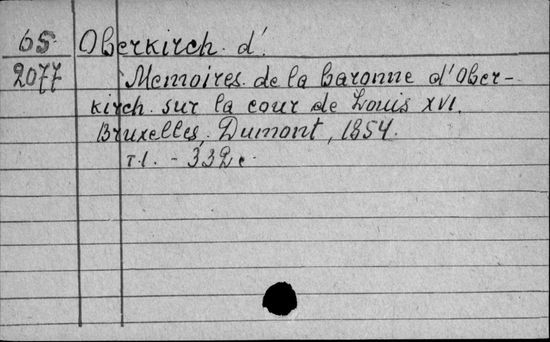 65 Oberkirch d'.
2077 Memoires de la baronne d'Ober-
kirch sur la cour de Louis XVI.
Bruxelles, Dumont, 1854.
т.1. - 332 с.